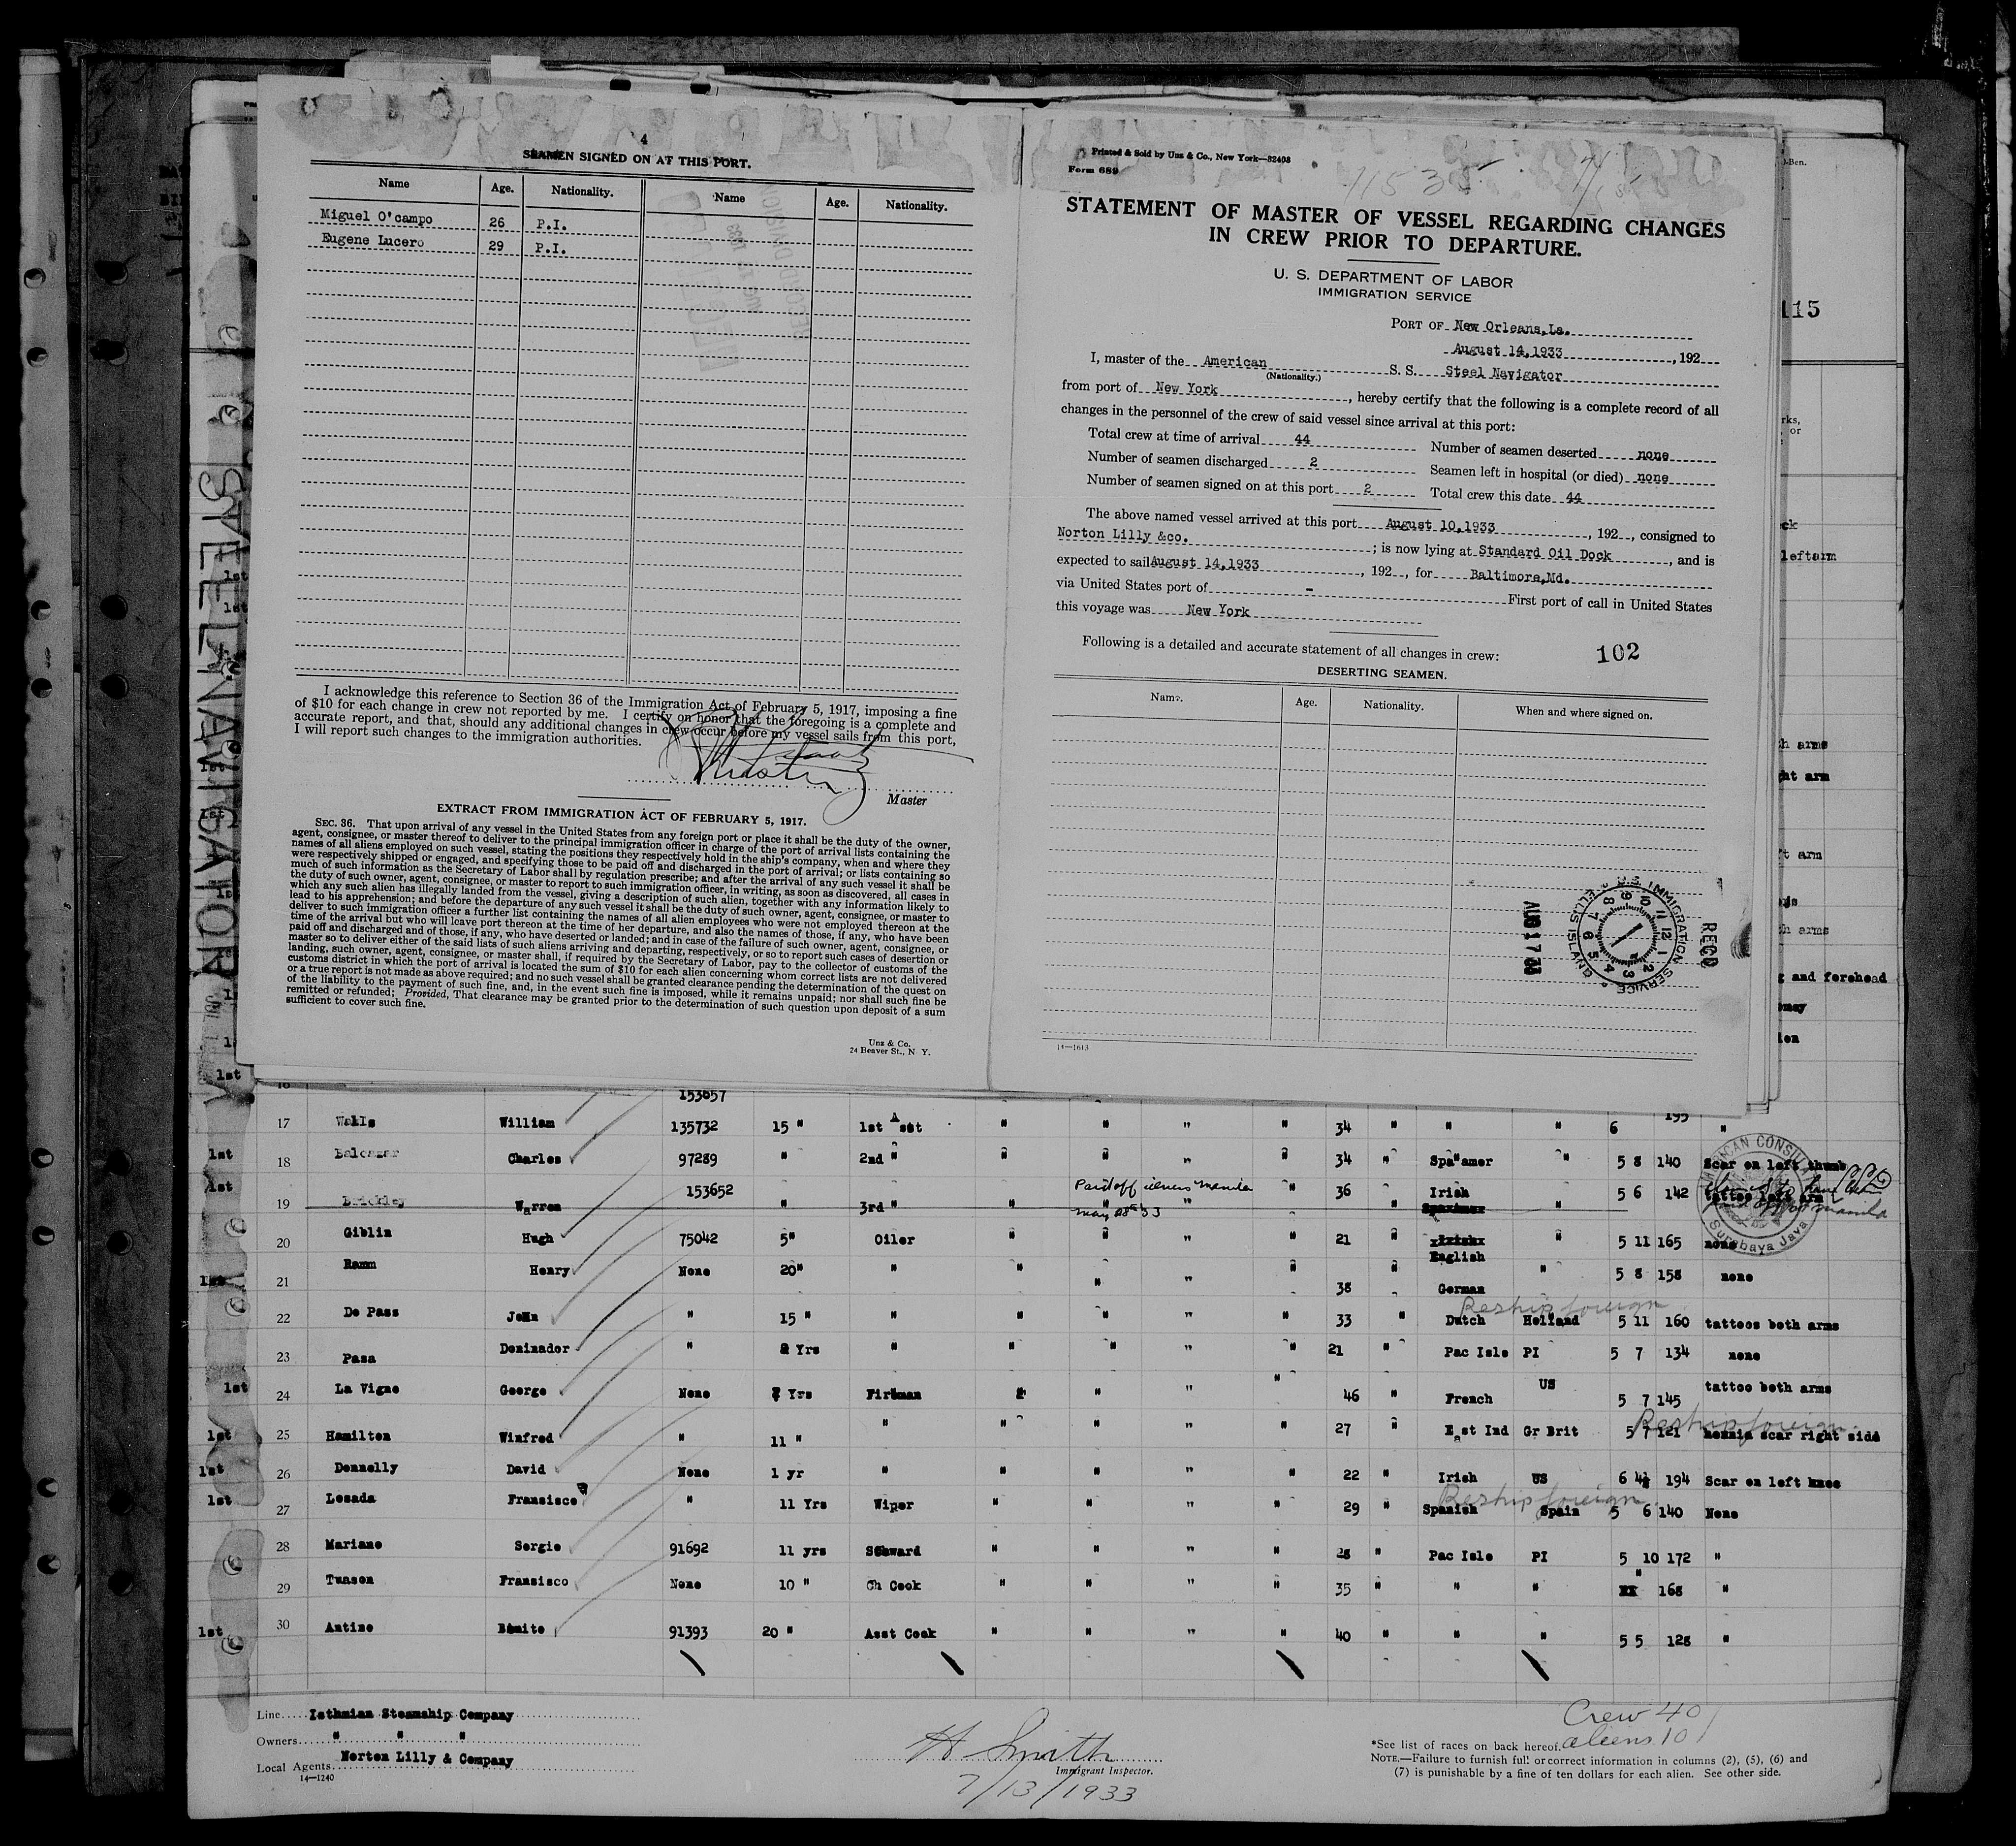 4
SEAMEN SIGNED ON AT THIS PORT.
Name Age. Nationality. Name Age. Nationality.
Miguel O'campo 26 P.I.
Eugene Lucero 29 P.I.
I acknowledge this reference to Section 36 of the Immigration Act of February 5, 1917, imposing a fine
of $10 for each change in crew not reported by me. I certify on honor that the foregoing is a complete and
accurate report, and that, should any additional changes in crew occur before my vessel sails from this port,
I will report such changes to the immigration authorities.
Master
EXTRACT FROM IMMIGRATION ACT OF FEBRUARY 5, 1917.
SEC. 36. That upon arrival of any vessel in the United States from any foreign port or place it shall be the duty of the owner,
agent, consignee, or master thereof to deliver to the principal immigration officer in charge of the port of arrival lists containing the
names of all aliens employed on such vessel, stating the positions they respectively hold in the ship's company, when and where they
were respectively shipped or engaged, and specifying those to be paid off and discharged in the port of arrival; or lists containing so
much of such information as the Secretary of Labor shall by regulation prescribe; and after the arrival of any such vessel it shall be
the duty of such owner, agent, consignee, or master to report to such immigration officer, in writing, as soon as discovered, all cases in
which any such alien has illegally landed from the vessel, giving a description of such alien, together with any information likely to
lead to his apprehension; and before the departure of any such vessel it shall be the duty of such owner, agent, consignee, or master to
deliver to such immigration officer a further list containing the names of all alien employees who were not employed thereon at the
time of the arrival but who will leave port thereon at the time of her departure, and also the names of those, if any, who have been
paid off and discharged and of those, if any, who have deserted or landed; and in case of the failure of such owner, agent, consignee, or
master so to deliver either of the said lists of such aliens arriving and departing, respectively, or so to report such cases of desertion or
landing, such owner, agent, consignee, or master shall, if required by the Secretary of Labor, pay to the collector of customs of the
customs district in which the port of arrival is located the sum of $10 for each alien concerning whom correct lists are not delivered
or a true report is not made as above required; and no such vessel shall be granted clearance pending the determination of the quest on
of the liability to the payment of such fine, and, in the event such fine is imposed, while it remains unpaid; nor shall such fine be
remitted or refunded; Provided, That clearance may be granted prior to the determination of such question upon deposit of a sum
sufficient to cover such fine.
Unz & Co.
24 Beaver St., N Y.
Printed & Sold by Unz & Co., New York—32408
Form 689
11535
STATEMENT OF MASTER OF VESSEL REGARDING CHANGES
IN CREW PRIOR TO DEPARTURE.
U. S. DEPARTMENT OF LABOR
IMMIGRATION SERVICE
PORT OF New Orleans,La.
August 14,1933, 192
I, master of the American S. S. Steel Navigator
(Nationality.)
from port of New York, hereby certify that the following is a complete record of all
changes in the personnel of the crew of said vessel since arrival at this port:
Total crew at time of arrival 44 Number of seamen deserted none
Number of seamen discharged 2 Seamen left in hospital (or died) none
Number of seamen signed on at this port 2 Total crew this date 44
The above named vessel arrived at this port August 10,1933, 192, consigned to
Norton Lilly &co.; is now lying at Standard Oil Dock, and is
expected to sail August 14,1933, 192, for Baltimore,Md.
via United States port of - First port of call in United States
this voyage was New York
Following is a detailed and accurate statement of all changes in crew: 102
DESERTING SEAMEN.
Name. Age. Nationality. When and where signed on.
14—1613
REC'D
U.S. IMMIGRATION SERVICE
ELLIS ISLAND
AUG 17 33
STEEL NAVIGATOR
115
leftarm
h arms
ht arm
t arm
h arms
g and forehead
153657
17 Walls William 135732 15 " 1st Asst " " " " 34 " " " 6 195 "
1st 18 Charles 97289 " 2nd " " " " " 34 " Spa"amer " 5 8 140 Scar on left thumb
1st 19 Brickley Warren 153652 " 3rd " " Paid off illness Manila May 28 33 " " 36 Irish " 5 6 142 tattoo left arm
20 Giblin Hugh 75042 5" Oiler " " " " 21 " English " 5 11 165 none
21 Ramm Henry None 20" " " " " " 38 German " 5 8 158 none
Reship foreign
22 De Pass John " 15 " " " " " " 33 " Dutch Holland 5 11 160 tattoos both arms
23 Pasa Dominador " 2 Yrs " " " " " 21 " Pac Isle PI 5 7 134 none
1st 24 La Vigne George None 7 Yrs Fireman " " " " 46 " French US 5 7 145 tattoo both arms
Reship foreign
1st 25 Hamilton Winfred " 11 " " " " " " 27 " East Ind Gr Brit 5 7 121 hernia scar right side
1st 26 Donnelly David None 1 yr " " " " " 22 " Irish US 6 4½ 194 Scar on left knee
Reship foreign
1st 27 Losada Fransisco " 11 Yrs Wiper " " " " 29 " Spanish Spain 5 6 140 None
28 Mariano Sergio 91692 11 yrs Steward " " " " 28 " Pac Isle PI 5 10 172 "
29 Tunson Fransisco None 10 " Ch Cook " " " " 35 " " " " 168 "
1st 30 Antino Benito 91393 20 " Asst Cook " " " " 40 " " " 5 5 128 "
AMERICAN CONSUL
Surabaya Java
Line Isthmian Steamship Company
Owners " " "
Local Agents Norton Lilly & Company
14—1240
H Smith
Immigrant Inspector.
7/13/1933
Crew 40
Aliens 10
*See list of races on back hereof.
NOTE.—Failure to furnish full or correct information in columns (2), (5), (6) and
(7) is punishable by a fine of ten dollars for each alien. See other side.